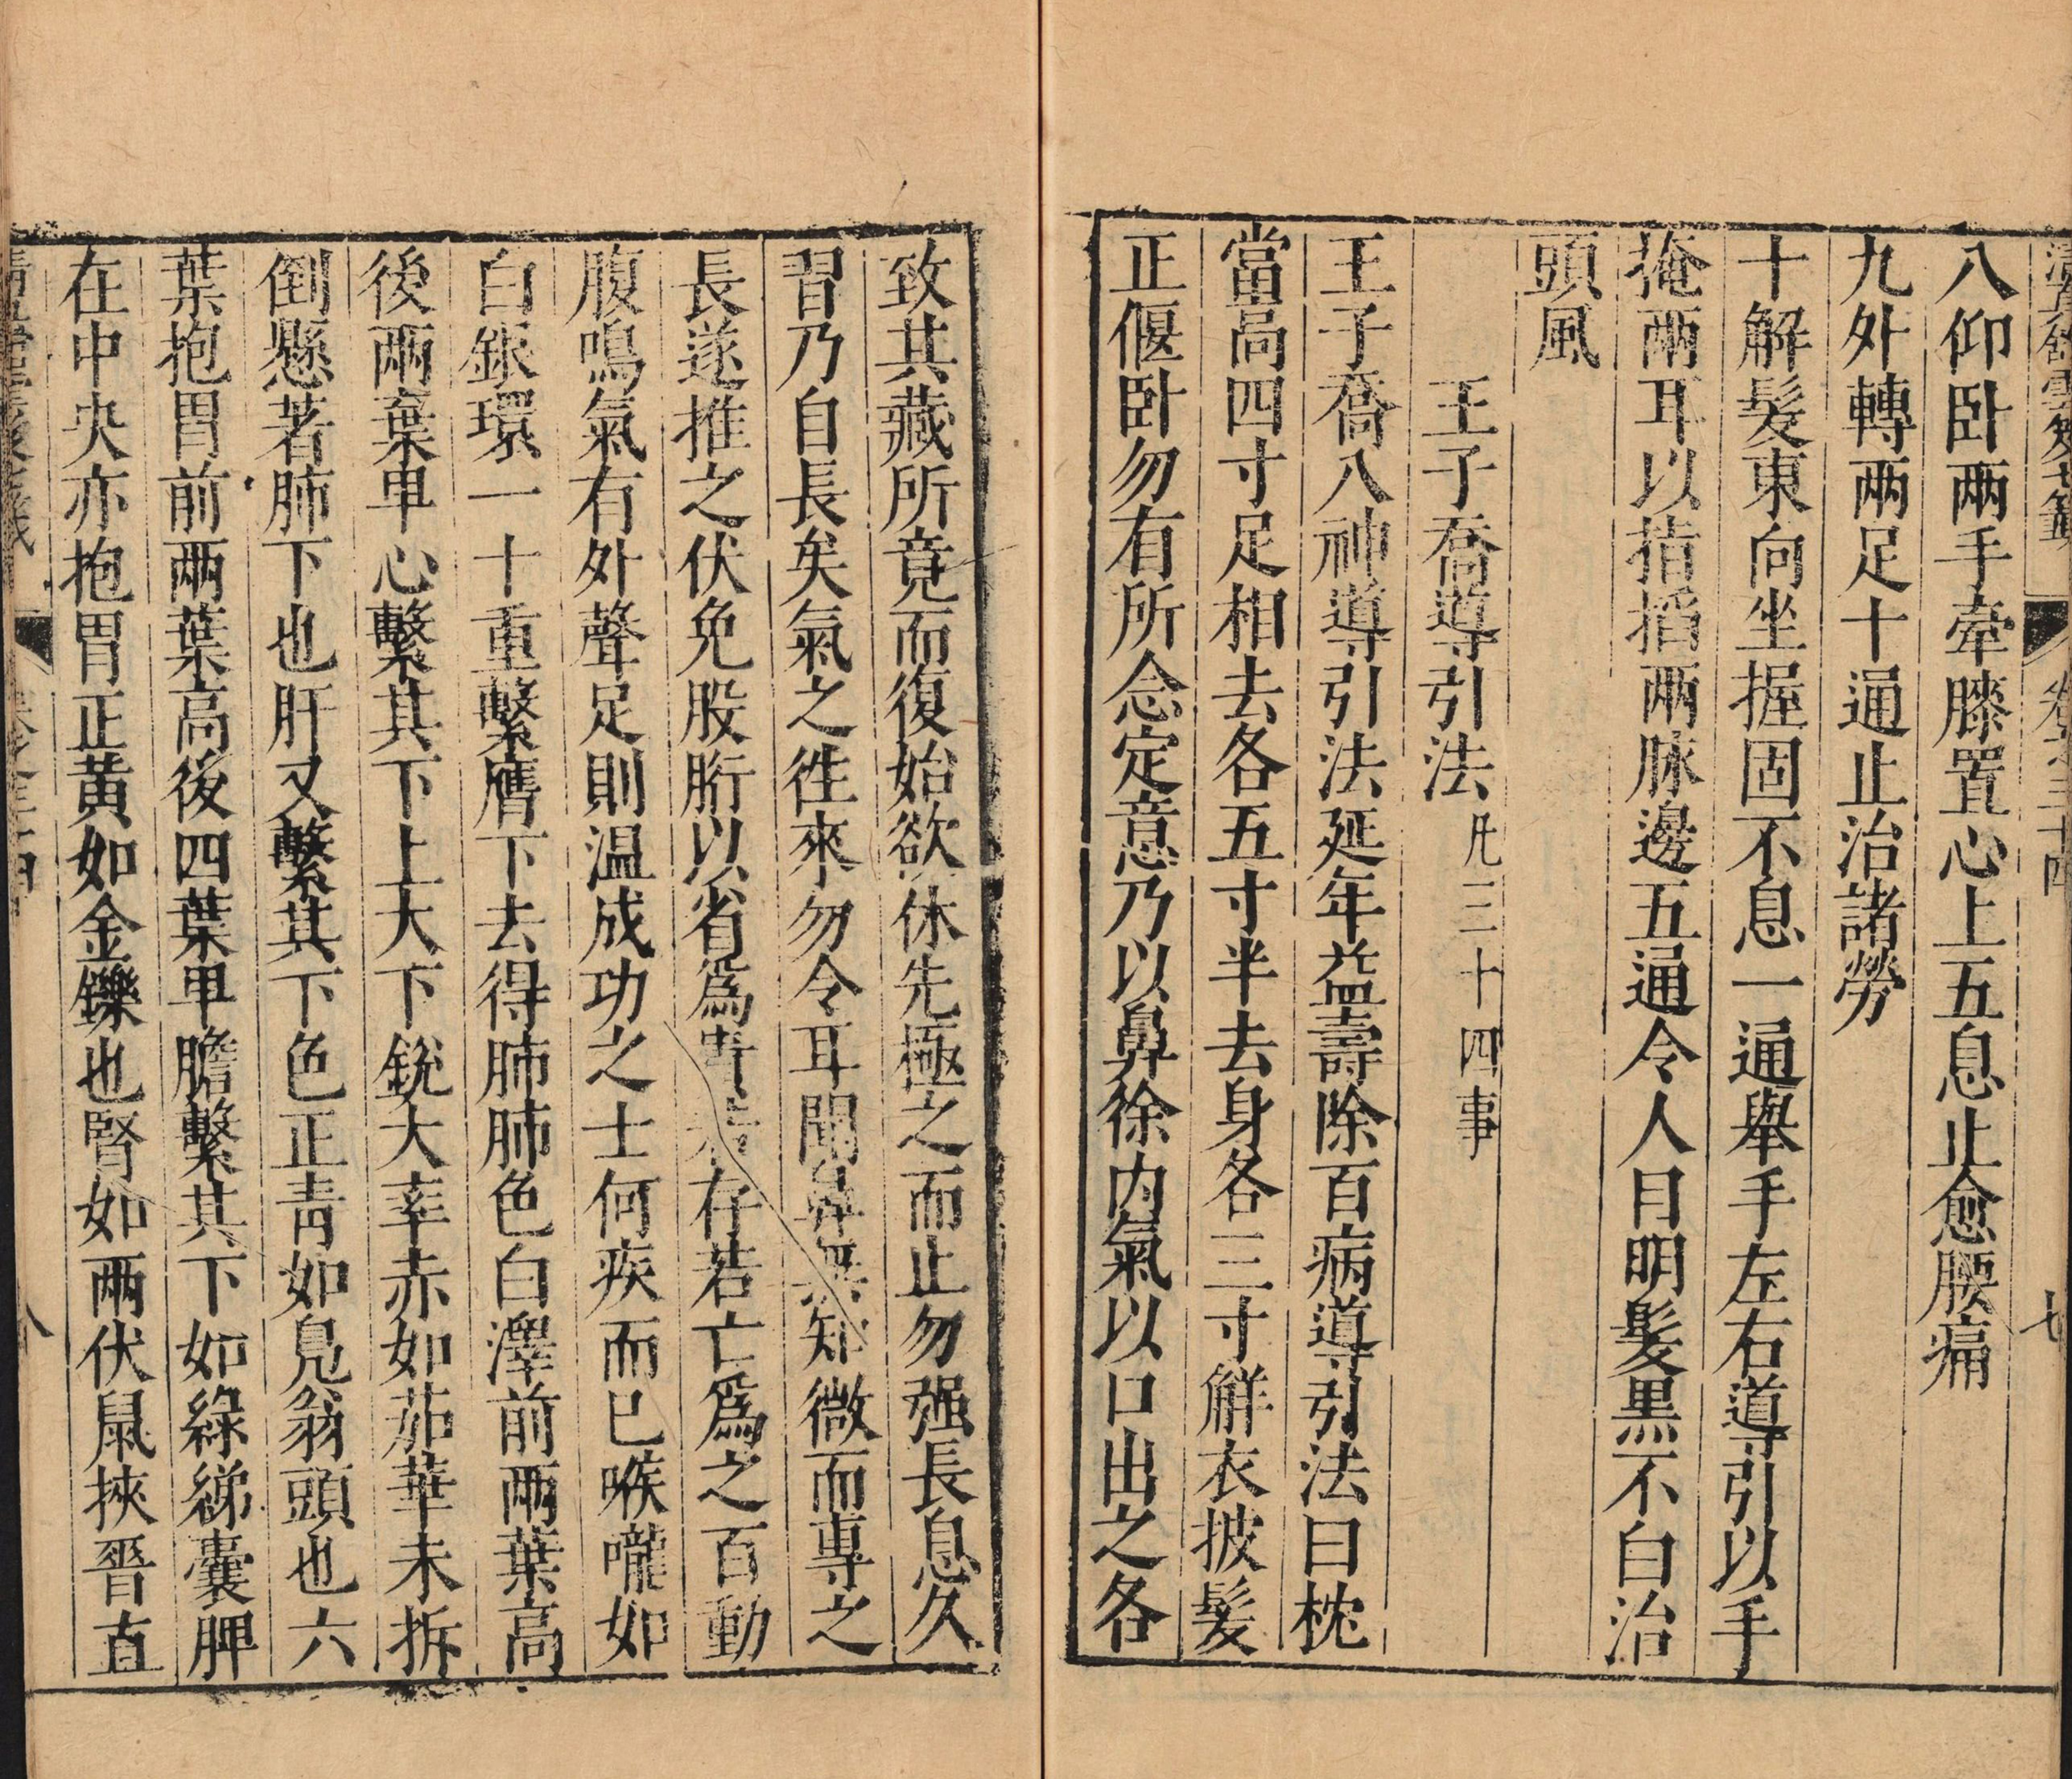 八仰卧兩手牽膝置心上五息止愈腰痛
九外轉兩足十通止治諸勞
十解髮東向坐握固不息一通舉手左右導引以手
掩兩耳以指掐兩脉邊五通令人目明髮黑不白治
頭風
王子喬導引法凡三十四事
王子喬八神導引法延年益壽除百病導引法曰枕
當高四寸足相去各五寸半去身各三寸觧衣披髮
正偃卧勿有所念定意乃以鼻徐内氣以口出之各
致其藏所竟而復始欲休先極之而止勿强長息久
習乃自長矣氣之徃來勿令耳聞鼻無知微而專之
長遂推之伏兔股胻以省爲貴若存若亡爲之百動
腹鳴氣有外聲足則温成功之士何疾而已喉嚨如
白銀環一十重繫膺下去得肺肺色白澤前兩葉高
後兩葉卑心繫其下上大下銳大率赤如茄華未拆
倒懸著肺下也肝又繫其下色正靑如鳧翁頭也六
葉抱胃前兩葉高後四葉卑膽繫其下如綠綈囊脾
在中央亦抱胃正黃如金鑠也腎如兩伏鼠挾脊直